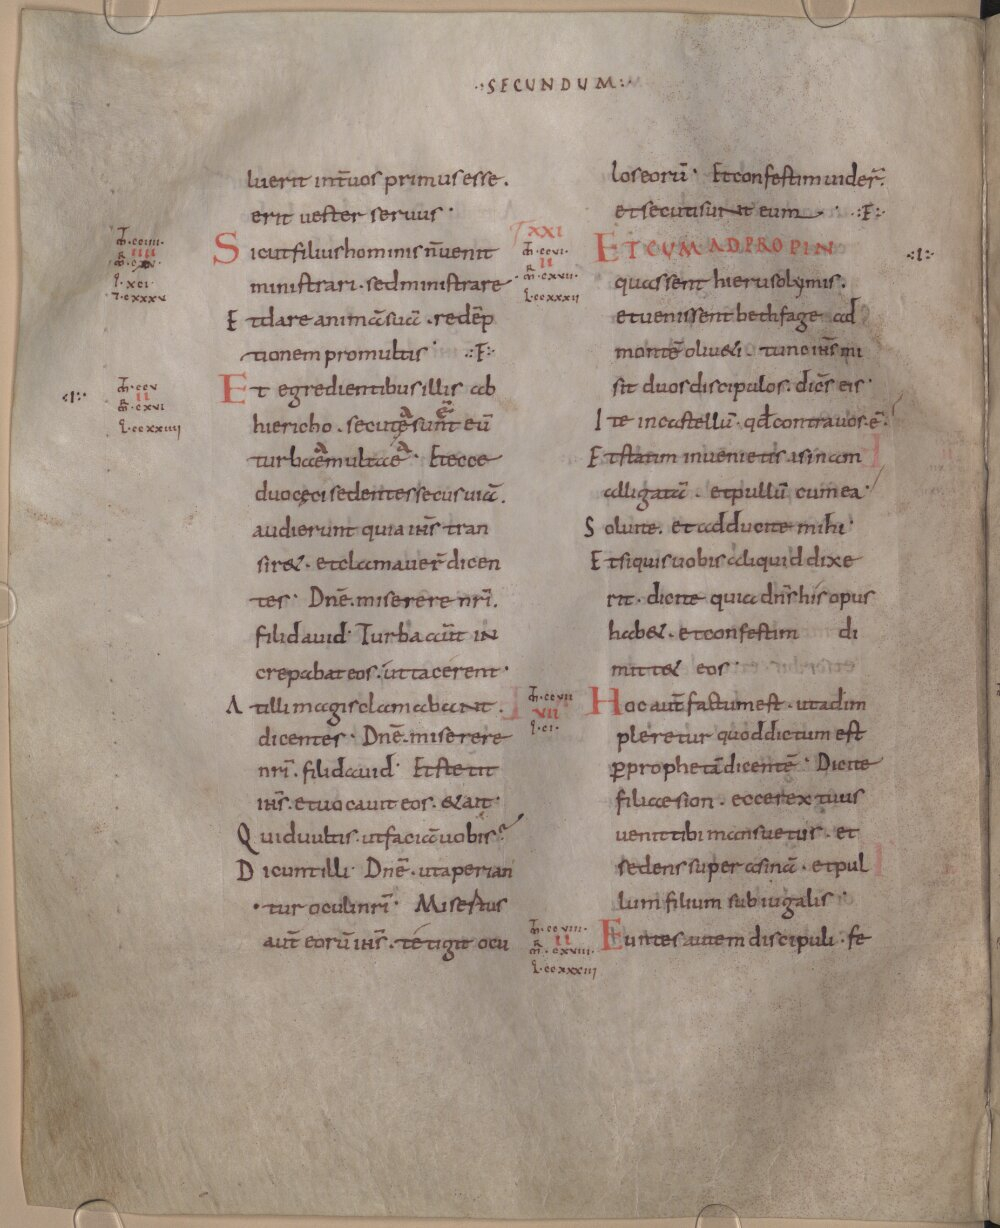 ·:SECUNDUM:·
luerit int̄ uos primus esse.
erit uester seruus·
Sicut filius hominis n̄ uenit
ministrari· sed ministrare
Et dare animā suā· redēp
tionem pro multis· .:F:·
Et egredientibus illis ab
hiericho. secutę sunt eū
turbae multae· Et ecce
duo ceci sedentes secus uiā.
audierunt quia ih̄s tran
sir&· et clamauer̄ dicen
tes· Dn̄e. miserere nr̄i.
fili dauid· Turba aūt in
crepabat eos. ut tacerent·
At illi magis clamabant.
dicentes· Dn̄e. miserere
nr̄i. fili dauid· Et stetit
ih̄s. et uocauit eos. & ait·
Quid uultis. ut faciā uobis?
Dicunt illi· Dn̄e. ut aperian
tur oculi nr̄i· Misertus
aūt eorū ih̄s. tetigit ocu
los eorū· Et confestim uider̄.
et secuti sunt eum· .:F:·
XXI
ET CUM ADPROPIN
quassent hierusolymis.
et uenissent bethfage ad
montē oliu&i. tunc ih̄s mi
sit duos discipulos. dicēs eis·
Ite in castellū. qd̄ contra uos ē.
Et statim inuenietis asinam
alligatā. et pullū cum ea·
Soluite. et adducite mihi·
Et si quis uobis aliquid dixe
rit· dicite quia dn̄s his opus
hab&. et confestim di
mitt& eos·
Hoc aūt factum est. ut adim
pleretur quod dictum est
ꝑ prophetā dicentē· Dicite
filiae sion. ecce rex tuus
uenit tibi mansuetus. et
sedens super asinā. et pul
lum filium subiugalis·
Euntes autem discipuli. fe